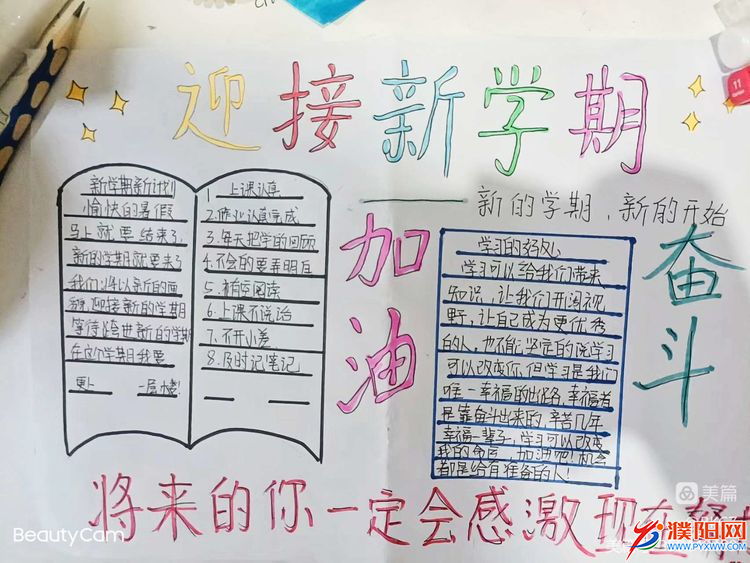 迎接新学期
——新的学期、新的开始
新学期新计划
愉快的暑假
马上就要结束了
新的学期就要来了
我们将以新的面
貌,迎接新的学期
等待绘世新的学期
在这个学期我要
更上 一层楼!
1 上课认真
2.作业认真完成
3.每天把学的回顾
4.不会的要弄明白
5.拍空阅读
6.上课不说话
7.不开小差
8.及时记笔记
加油
学习的好处
学习可以给我们带来
知识,让我们开阔视
野,让自己成为更优秀
的人,也不能坚定的说学习
可以改变你,但学习是我们
唯一幸福的出路,幸福者
是靠奋斗出来的,辛苦几年
幸福一辈子,学习可以改变
我的命运,加油吧!机会
都是给有准备的人!
奋斗
将来的你一定会感激现在努
BeautyCam
美篇
濮阳网
WWW.PYXWW.COM
11